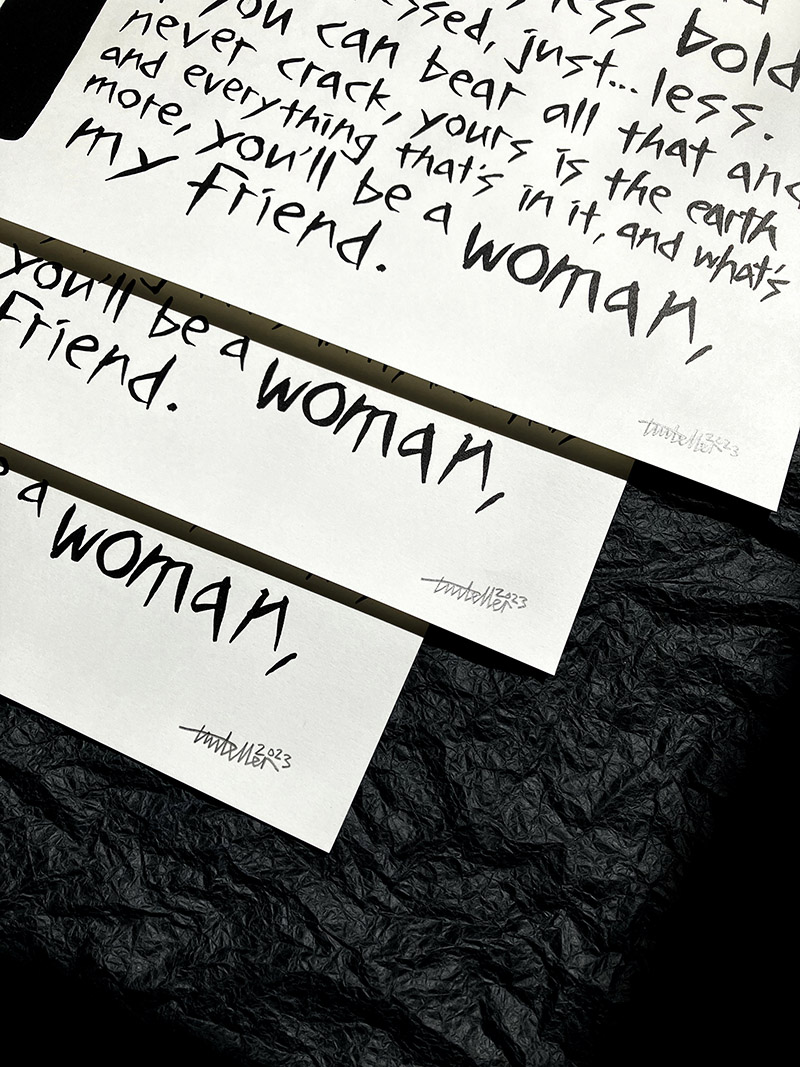 less bold
just... less.
you can bear all that and
never crack, yours is the earth
and everything that's in it, and what's
more, you'll be a woman,
my Friend.
2023
you'll be a woman,
Friend.
2023
a woman,
2023